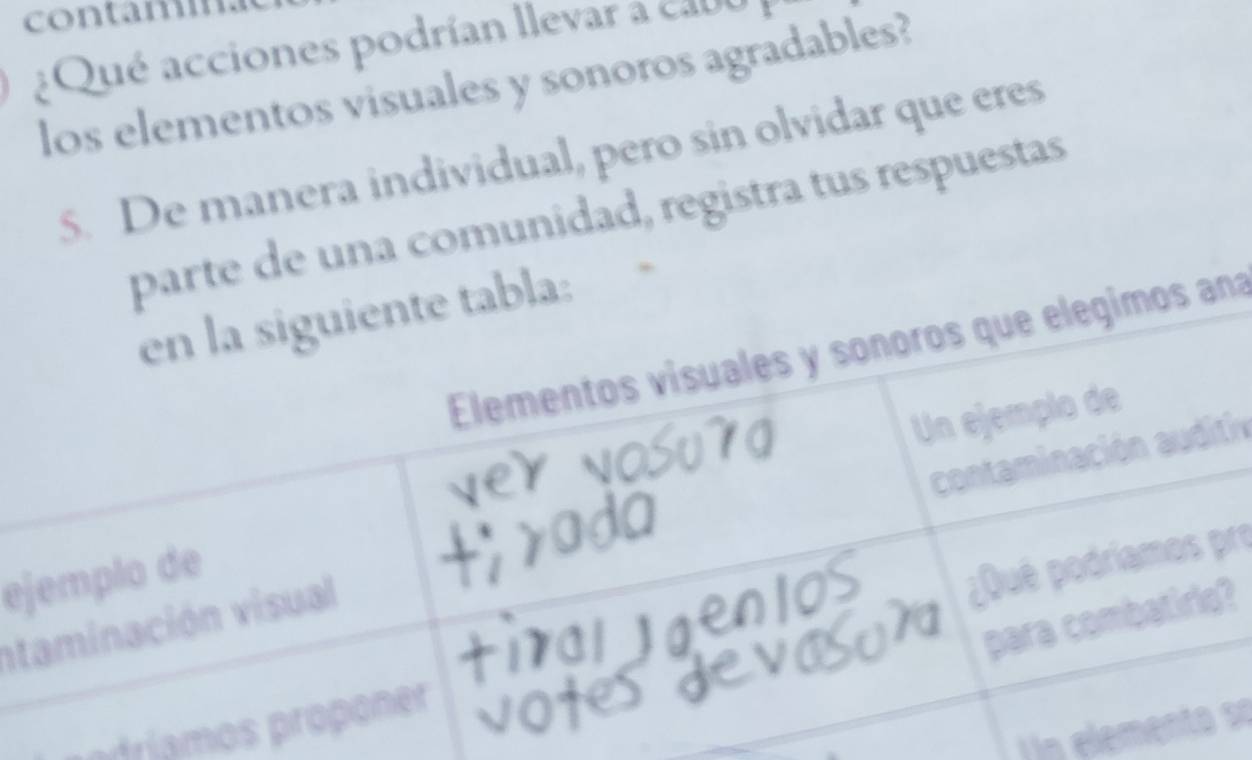 ¿Qué acciones podrían llevar a cabo
los elementos visuales y sonoros agradables?
5. De manera individual, pero sin olvidar que eres
parte de una comunidad, registra tus respuestas
en la siguiente tabla:
Elementos visuales y sonoros que elegimos ana
ver vosura
tirada
Un ejemplo de
contaminación auditiv
ejemplo de
ntaminación visual
tiral ja en los
votes de vosura
¿Qué podríamos pro
para combatirlo?
podríamos proponer
Un elemento so